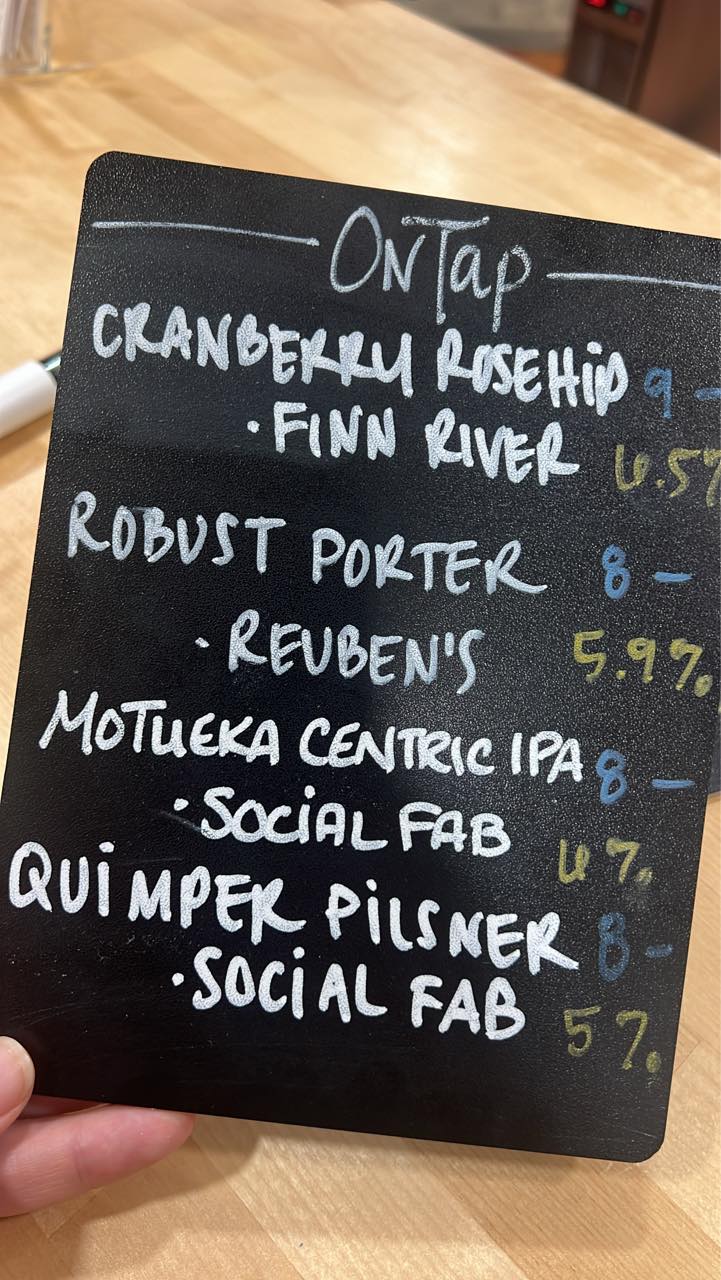 OnTap
CRANBERRY ROSEHIP 9 -
· FINN RIVER 6.5%
ROBUST PORTER 8 -
· REUBEN'S 5.9%
MOTUEKA CENTRIC IPA 8 -
· SOCIAL FAB 6%
QUIMPER PILSNER 8 -
· SOCIAL FAB 5%